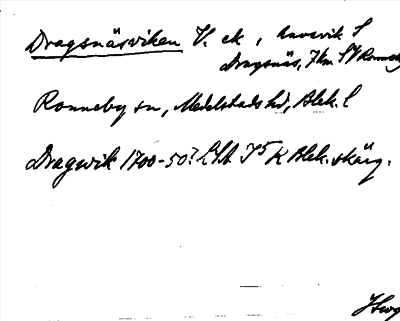 Dragsnäsviken V. ek, havsvik S
Dragsnäs, 7 km SV Ronneby
Ronneby sn, Medelstads hd, Blek. l
Dragwik 1700-50? LSA J5 K Blek. skärg.